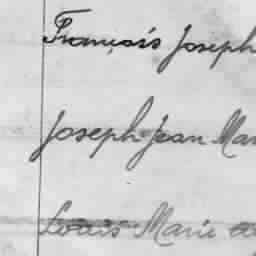 François Joseph
Joseph Jean Mar
Louis Marie